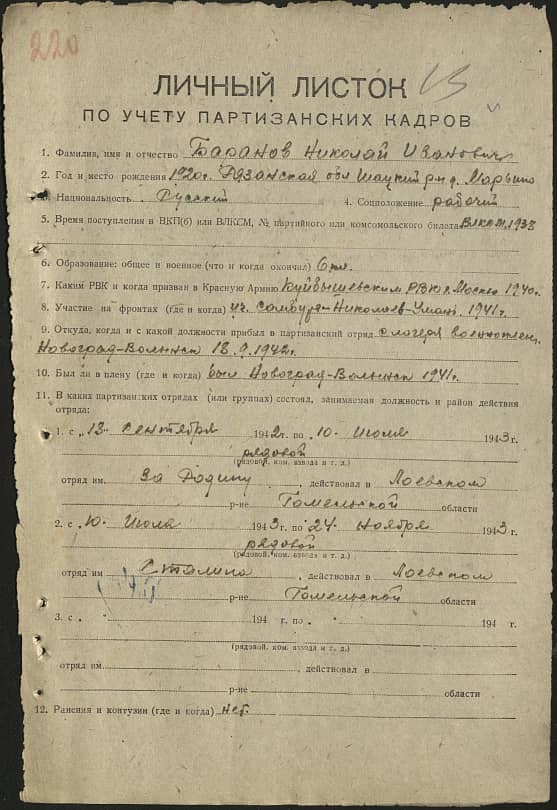 220
ЛИЧНЫЙ ЛИСТОК
ПО УЧЕТУ ПАРТИЗАНСКИХ КАДРОВ
1. Фамилия, имя и отчество Баранов Николай Иванович
2. Год и место рождения 1920г. Рязанской обл Шацкий р-н д. Марьино
3. Национальность Русский 4. Соцположение рабочий
5. Время поступления в ВКП(б) или ВЛКСМ, № партийного или комсомольского билета ВЛКСМ. 1938
6. Образование: общее и военное (что и когда окончил) 6 кл.
7. Каким РВК и когда призван в Красную Армию Куйбышевским РВК г. Москва 1940г.
8. Участие на фронтах (где и когда) Николаев-Умань 1941г.
9. Откуда, когда и с какой должности прибыл в партизанский отряд с лагеря военноплен.
Новоград-Волынск 13.9.1942г.
10. Был ли в плену (где и когда) был Новоград-Волынск 1941г.
11. В каких партизанских отрядах (или группах) состоял, занимаемая должность и район действия
отряда:
1. с „13 сентября 1942г. по 10 июля 1943г.
рядовой
(рядовой, ком. взвода и т. д.)
отряд им. За Родину, действовал в Лоевском
р-не Гомельской области
2. с 10 Июля 1943г. по 24 Ноября 1943г.
рядовой
(рядовой, ком. взвода и т. д.)
отряд им Сталина, действовал в Лоевском
р-не Гомельской области
3. с 194 г. по 194 г.
(рядовой, ком. взвода и т. д.)
отряд им. , действовал в
р-не области
12. Ранения и контузии (где и когда) нет.